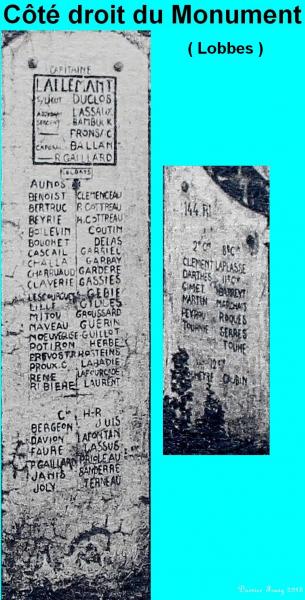 Côté droit du Monument
( Lobbes )
CAPITAINE
LALLEMANT
S/LIEUT DUCLOS
ADJUDANT LASSAUX
SERGENT BAMBUCK
FRONSAC
CAPORAL BALLAN
R.GAILLARD
SOLDATS
AUNOS
BENOIST CLEMENCEAU
BERTRUC R.COTTREAU
BEYRIE H.COTTREAU
BOILEVIN COUTIN
BOUCHET DELAS
CASCAIL GABRIEL
CHALLA GARBAY
CHARRUAUD GARDERE
CLAVERIE GASSIES
LESCOURGUES GÉBIE
LILLE GILLES
MITOU GROUSSARD
NAVEAU GUÉRIN
GUILLOT
POTIRON HERBE
PREVOST HOSTEINS
PROUX.C LABADIE
RENE LAFOURCADE
RIBIERE LAURENT
Cie H-R
BERGEON JUIS
DAVION LAFONTAN
FAURE LASSUS
P.GAILLARD PRIOLEAU
JANIS SANDERRE
JOLY TERNEAU
144.RI
2e Cie 8e Cie
CLEMENT LAPLASSE
DARTHES 11e Cie
GIMET BARREYT
MARTIN MARCHAIS
PEYROU ROQUES
TOURNIE SERRES
TOUHE
12e Cie
DUBIN